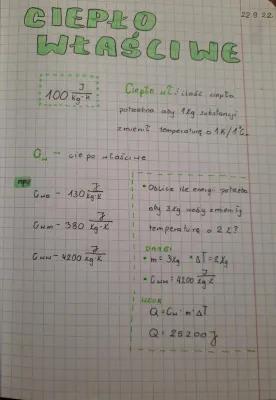 22.9.22
CIEPŁO
WŁAŚCIWE
100 J/kg·K
Ciepło wł: ilość ciepła
potrzebna aby 1kg substancji
zmienić temperaturę o 1K/1°C.
Cw - ciepło właściwe
np:
- 130 J/kg·K
- 380 J/kg·K
- 4200 J/kg·K
• Oblicz ile energii potrzeba
aby 3kg wody zmienić
temperaturę o 2K?
DANE:
• m = 3kg • ΔT = 2kg
• = 4200 J/kg·K
WZÓR
Q = Cw · m · ΔT
Q = 25200 J